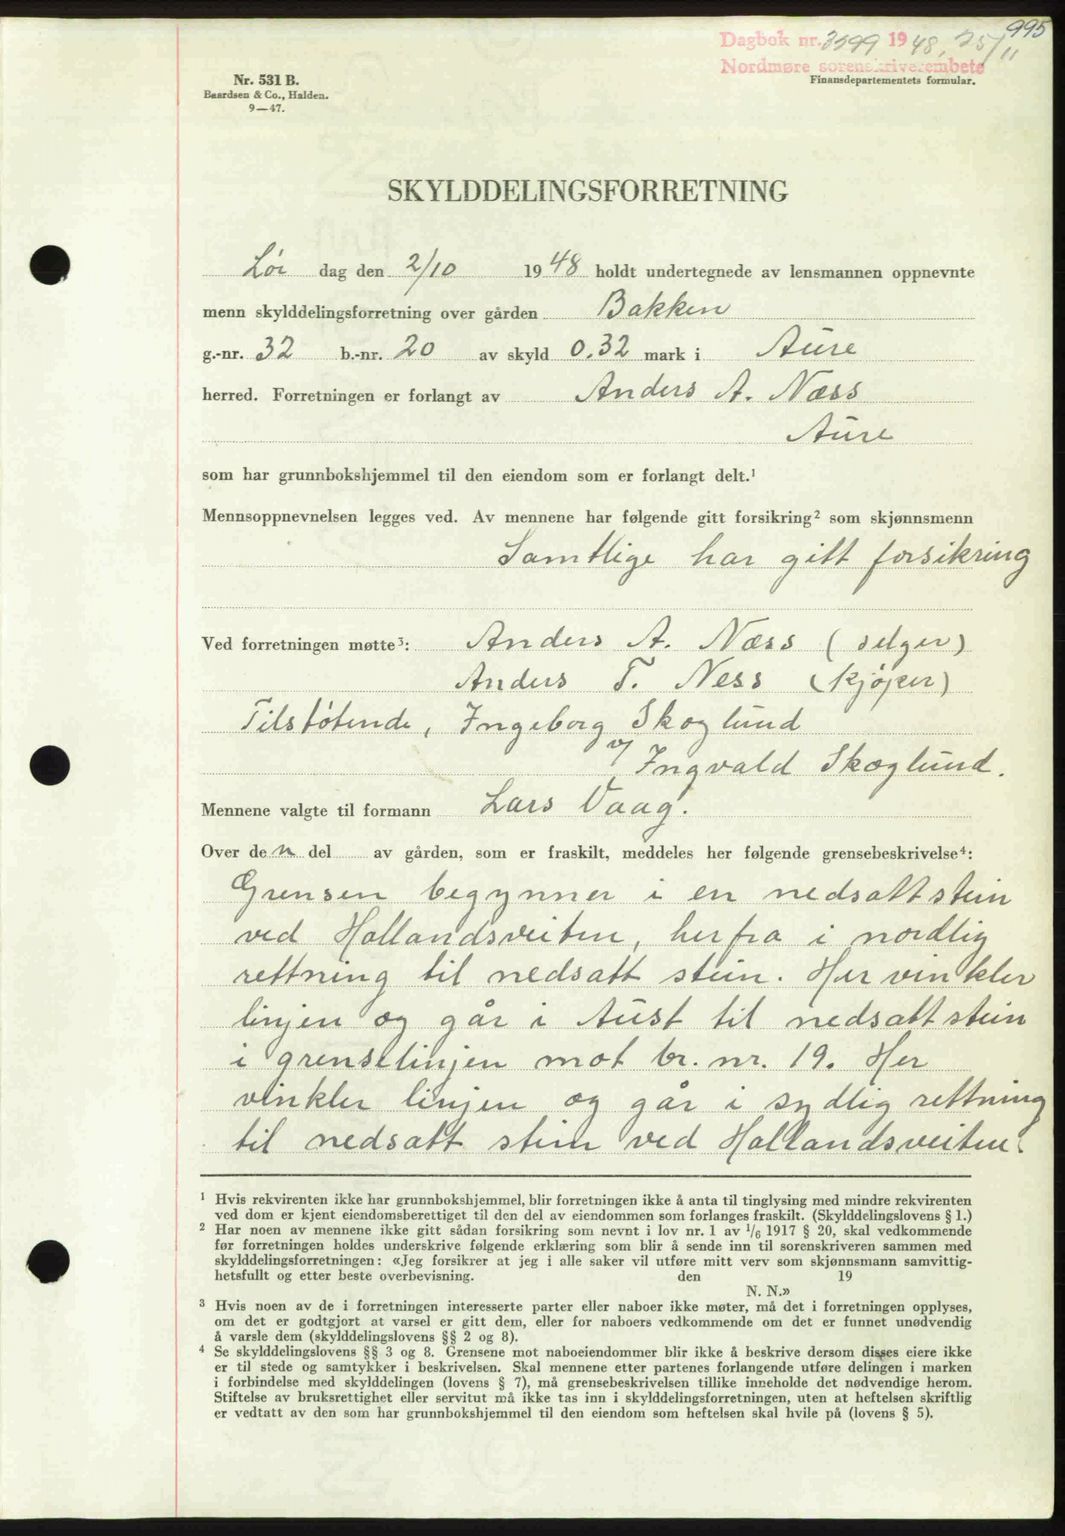 995
Dagbok nr. 3599 1948, 25/11
Nordmøre sorenskriverembete
Nr. 531 B.
Baardsen & Co., Halden.
9—47.
Finansdepartementets formular.
SKYLDDELINGSFORRETNING
Lør dag den 2/10 1948 holdt undertegnede av lensmannen oppnevnte
menn skylddelingsforretning over gården Bakken
g.-nr. 32 b.-nr. 20 av skyld 0.32 mark i Aure
herred. Forretningen er forlangt av Anders A. Næss
Aure
som har grunnbokshjemmel til den eiendom som er forlangt delt.¹
Mennsoppnevnelsen legges ved. Av mennene har følgende gitt forsikring² som skjønnsmenn
Samtlige har gitt forsikring
Ved forretningen møtte³: Anders A. Næss (selger)
Anders T. Ness (kjøper)
Tilstøtende, Ingeborg Skoglund
v/ Ingvald Skoglund.
Mennene valgte til formann Lars Vaag.
Over den del av gården, som er fraskilt, meddeles her følgende grensebeskrivelse⁴:
Grensen begynner i en nedsatt stein
ved Hollandsveiten, herfra i nordlig
rettning til nedsatt stein. Her vinkler
linjen og går i Aust til nedsatt stein
i grenselinjen mot br. nr. 19. Her
vinkler linjen og går i sydlig rettning
til nedsatt stein ved Hollandsveiten.
¹ Hvis rekvirenten ikke har grunnbokshjemmel, blir forretningen ikke å anta til tinglysing med mindre rekvirenten
ved dom er kjent eiendomsberettiget til den del av eiendommen som forlanges fraskilt. (Skylddelingslovens § 1.)
² Har noen av mennene ikke gitt sådan forsikring som nevnt i lov nr. 1 av 1/6 1917 § 20, skal vedkommende
før forretningen holdes underskrive følgende erklæring som blir å sende inn til sorenskriveren sammen med
skylddelingsforretningen: «Jeg forsikrer at jeg i alle saker vil utføre mitt verv som skjønnsmann samvittig-
hetsfullt og etter beste overbevisning. den 19
N. N.»
³ Hvis noen av de i forretningen interesserte parter eller naboer ikke møter, må det i forretningen opplyses,
om det er godtgjort at varsel er gitt dem, eller for naboers vedkommende om det er funnet unødvendig
å varsle dem (skylddelingslovens §§ 2 og 8).
⁴ Se skylddelingslovens §§ 3 og 8. Grensene mot naboeiendommer blir ikke å beskrive dersom disses eiere ikke
er til stede og samtykker i beskrivelsen. Skal mennene etter partenes forlangende utføre delingen i marken
i forbindelse med skylddelingen (lovens § 7), må grensebeskrivelsen tillike inneholde det nødvendige herom.
Stiftelse av bruksrettighet eller servitut må ikke tas inn i skylddelingsforretningen, uten at heftelsen skriftlig
er vedtatt av den som har grunnbokshjemmel til den eiendom som heftelsen skal hvile på (lovens § 5).